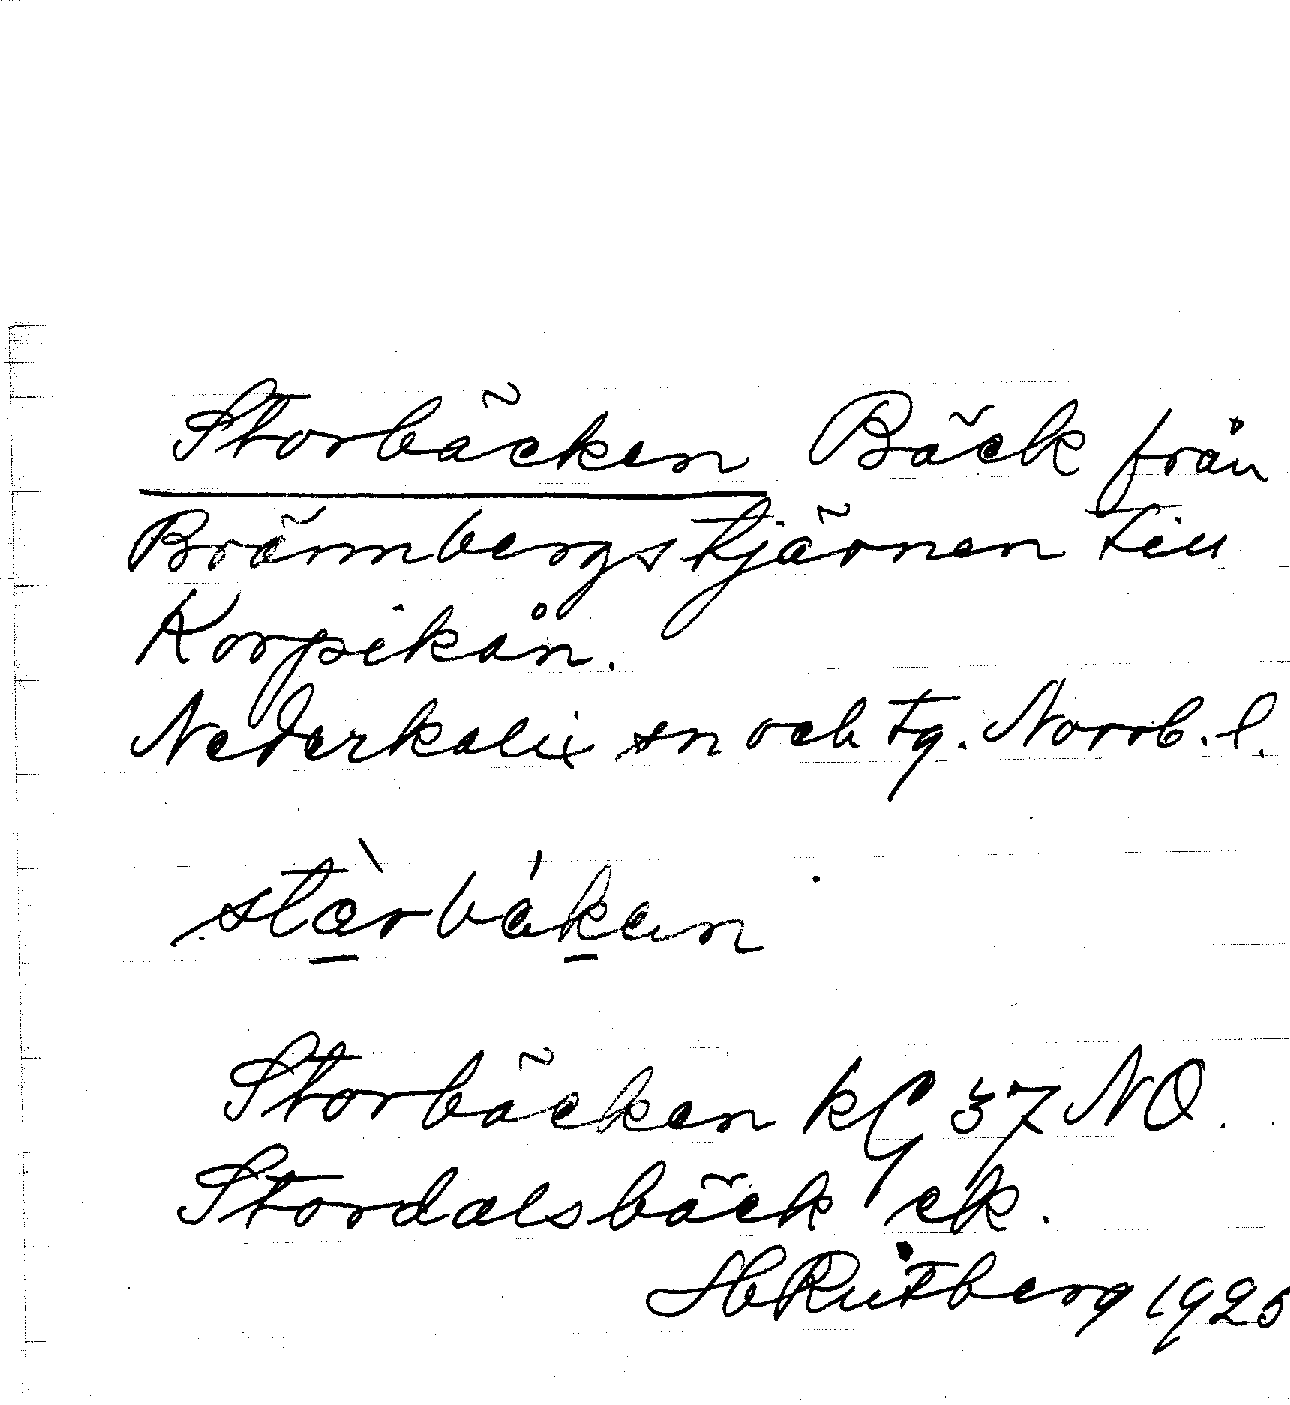 Storbäcken Bäck från
Brännbergstjärnen till
Korpikån.
Nederkalix sn och tg. Norrb. l.
stǽrbäken
Storbäcken kG 37 NO.
Stordalsbäck ek.
H Rutberg 1925